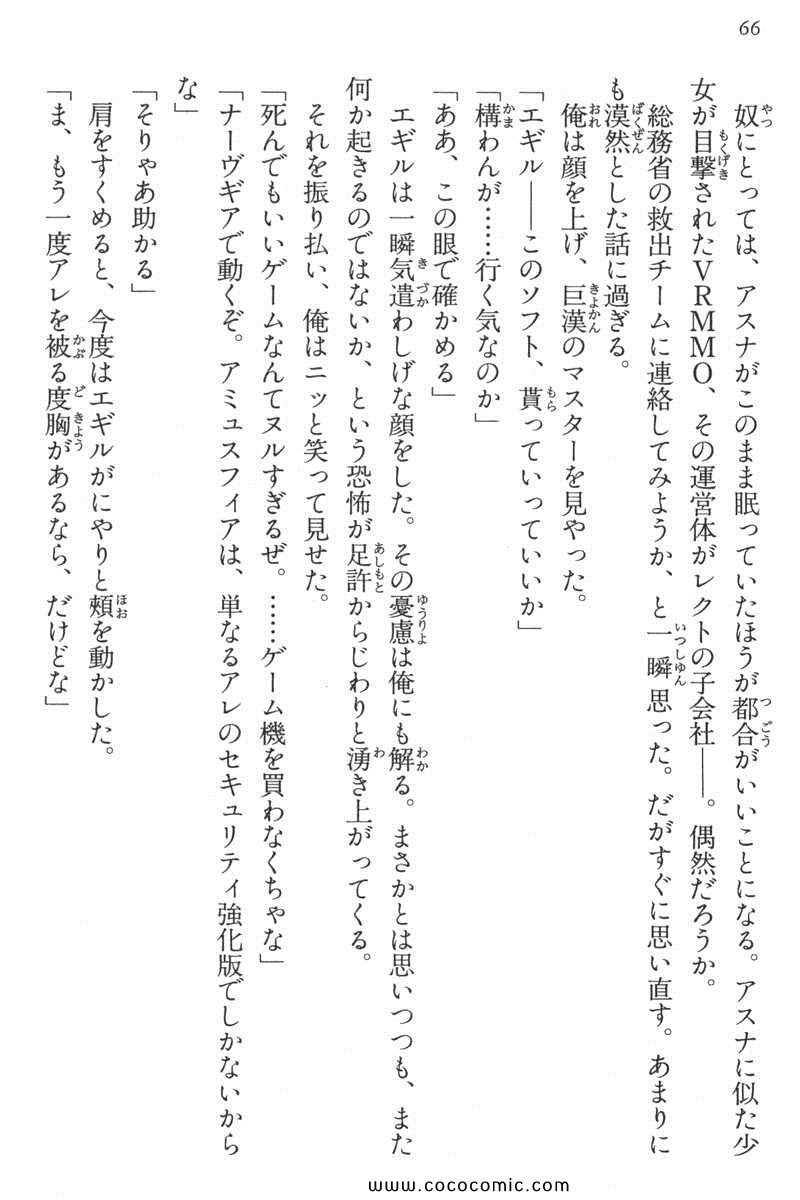 66
奴にとっては、アスナがこのまま眠っていたほうが都合がいいことになる。アスナに似た少
女が目撃されたVRMMO、その運営体がレクトの子会社――。偶然だろうか。
総務省の救出チームに連絡してみようか、と一瞬思った。だがすぐに思い直す。あまりに
も漠然とした話に過ぎる。
俺は顔を上げ、巨漢のマスターを見やった。
「エギル――このソフト、貰っていっていいか」
「構わんが……行く気なのか」
「ああ、この眼で確かめる」
エギルは一瞬気遣わしげな顔をした。その憂慮は俺にも解る。まさかとは思いつつも、また
何か起きるのではないか、という恐怖が足許からじわりと湧き上がってくる。
それを振り払い、俺はニッと笑って見せた。
「死んでもいいゲームなんてヌルすぎるぜ。……ゲーム機を買わなくちゃな」
「ナーヴギアで動くぞ。アミュスフィアは、単なるアレのセキュリティ強化版でしかないから
な」
「そりゃあ助かる」
肩をすくめると、今度はエギルがにやりと頬を動かした。
「ま、もう一度アレを被る度胸があるなら、だけどな」
www.cococomic.com